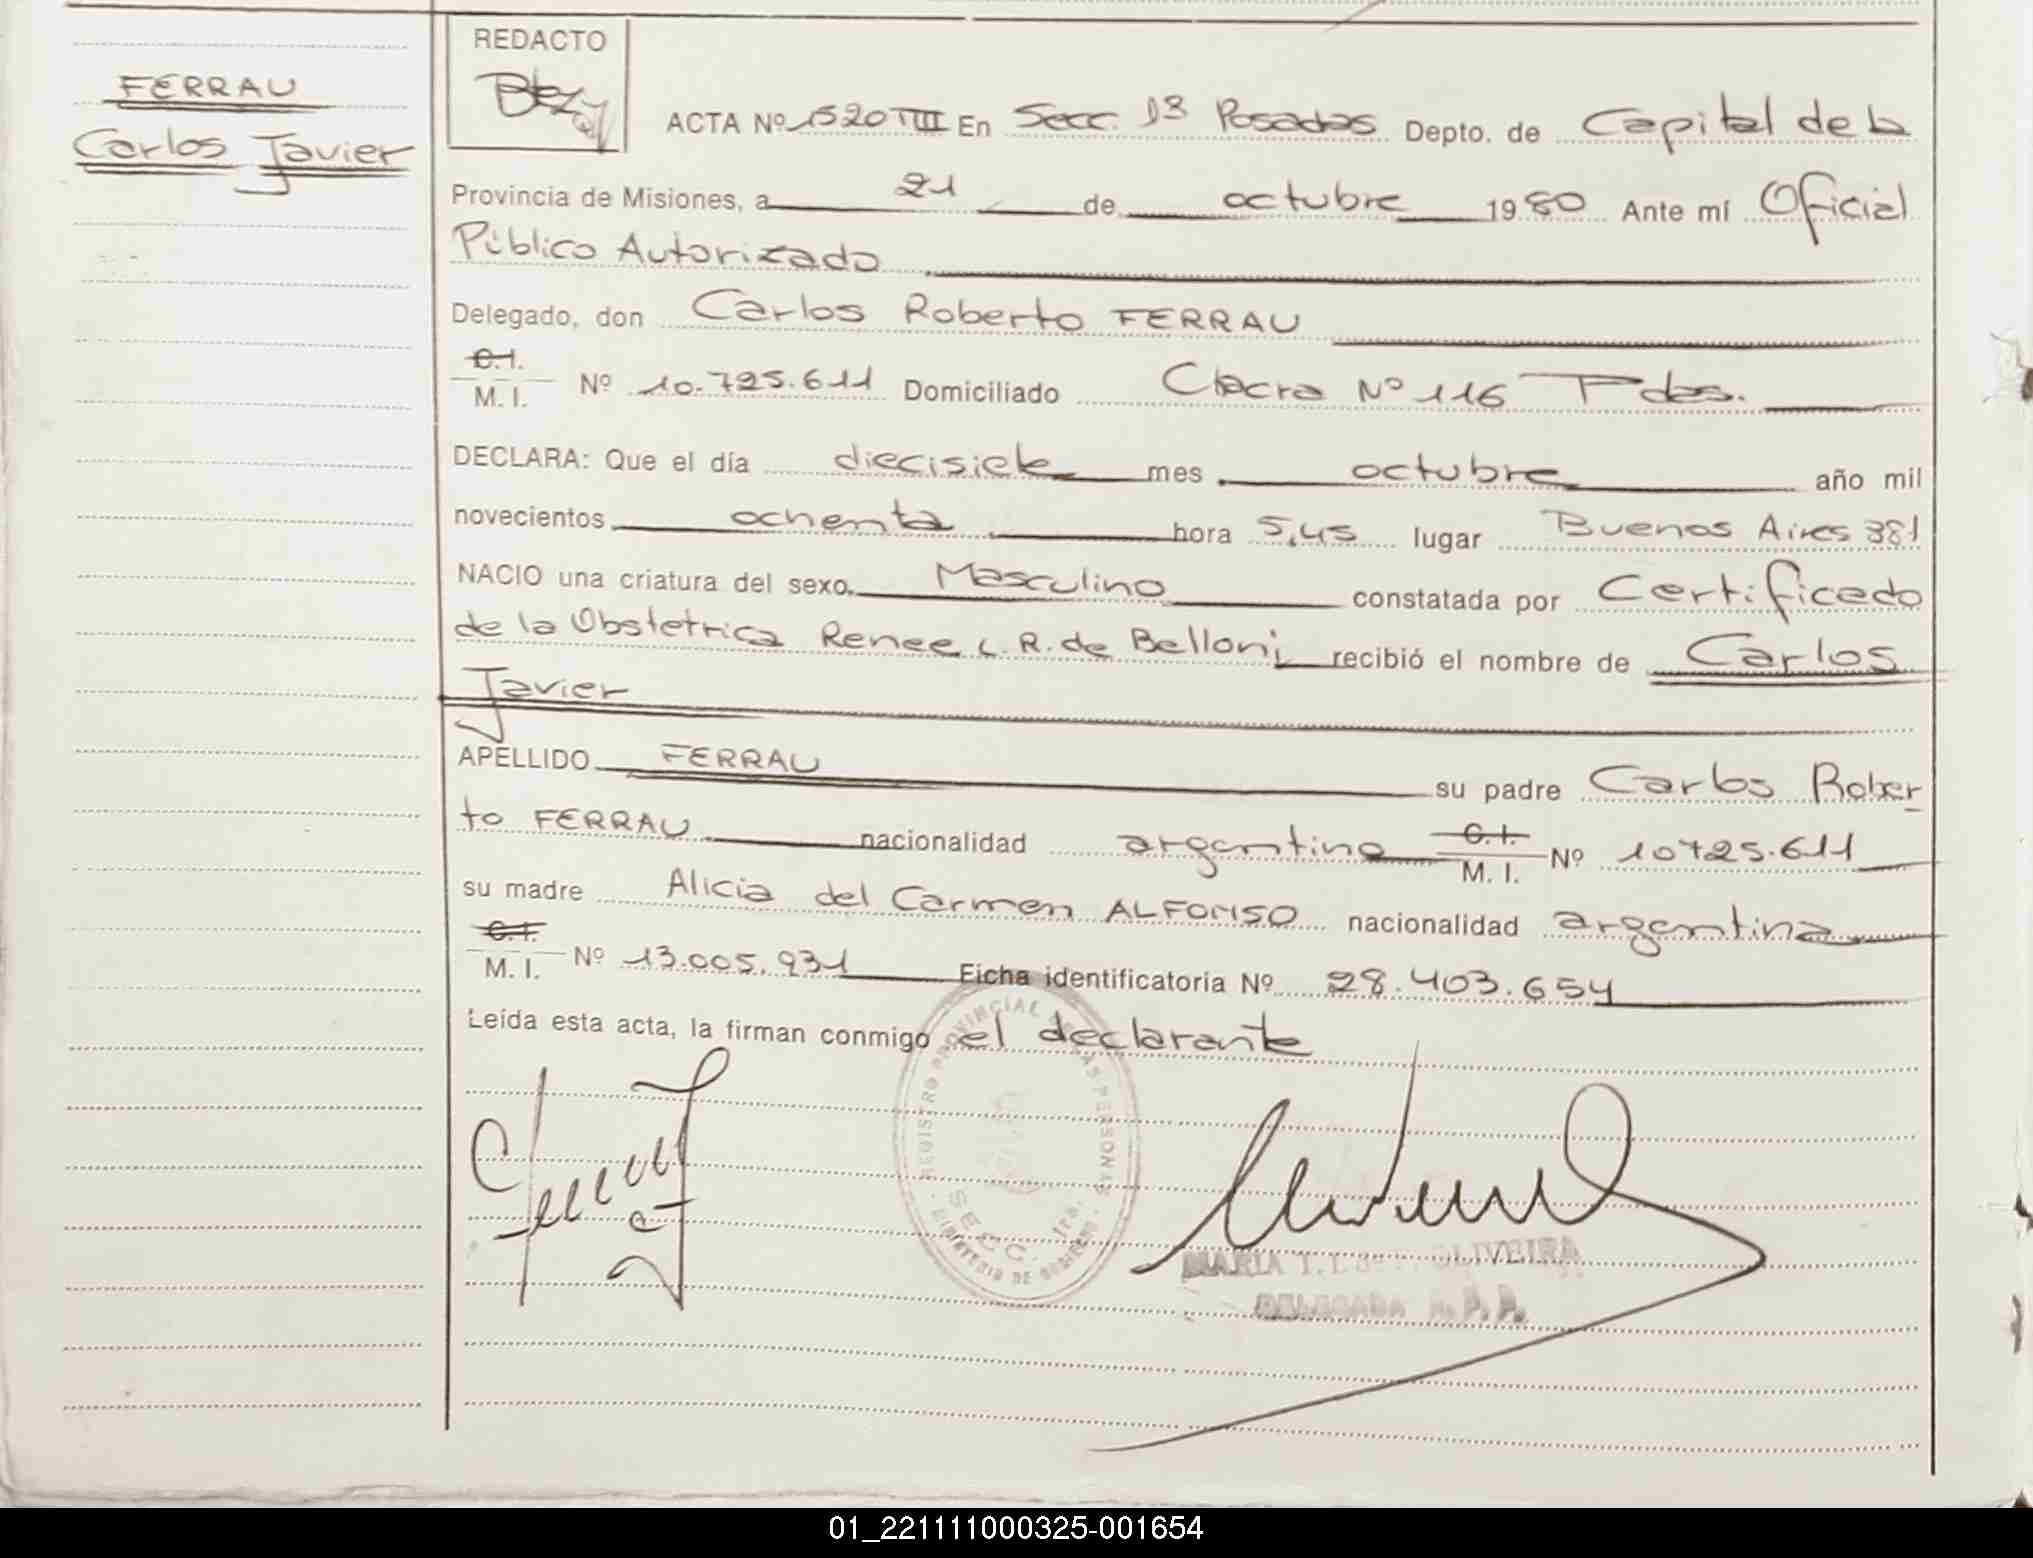 REDACTO
FERRAU
Carlos Javier
ACTA Nº 1520 TIII En Secc. 1ª Posadas Depto. de Capital de la
Provincia de Misiones, a 21 de octubre 1980 Ante mí Oficial
Público Autorizado
Delegado, don Carlos Roberto FERRAU
C.I.
M. I. Nº 10.725.611 Domiciliado Chacra Nº 116 Pdas.
DECLARA: Que el día diecisiete mes octubre año mil
novecientos ochenta hora 5,45 lugar Buenos Aires 381
NACIO una criatura del sexo Masculino constatada por Certificado
de la Obstetrica Renee L. R. de Belloni recibió el nombre de Carlos
Javier
APELLIDO FERRAU su padre Carlos Rober
to FERRAU nacionalidad argentino C.I.
M. I. Nº 10725.611
su madre Alicia del Carmen ALFONSO nacionalidad argentina
C.I.
M. I. Nº 13.005.931 Ficha identificatoria Nº 28.403.654
Leída esta acta, la firman conmigo el declarante
REGISTRO PROVINCIAL DE LAS PERSONAS
SECC. 1ra.
MINISTERIO DE GOBIERNO
MARIA OLIVEIRA
DELEGADA R. P. P.
01_221111000325-001654